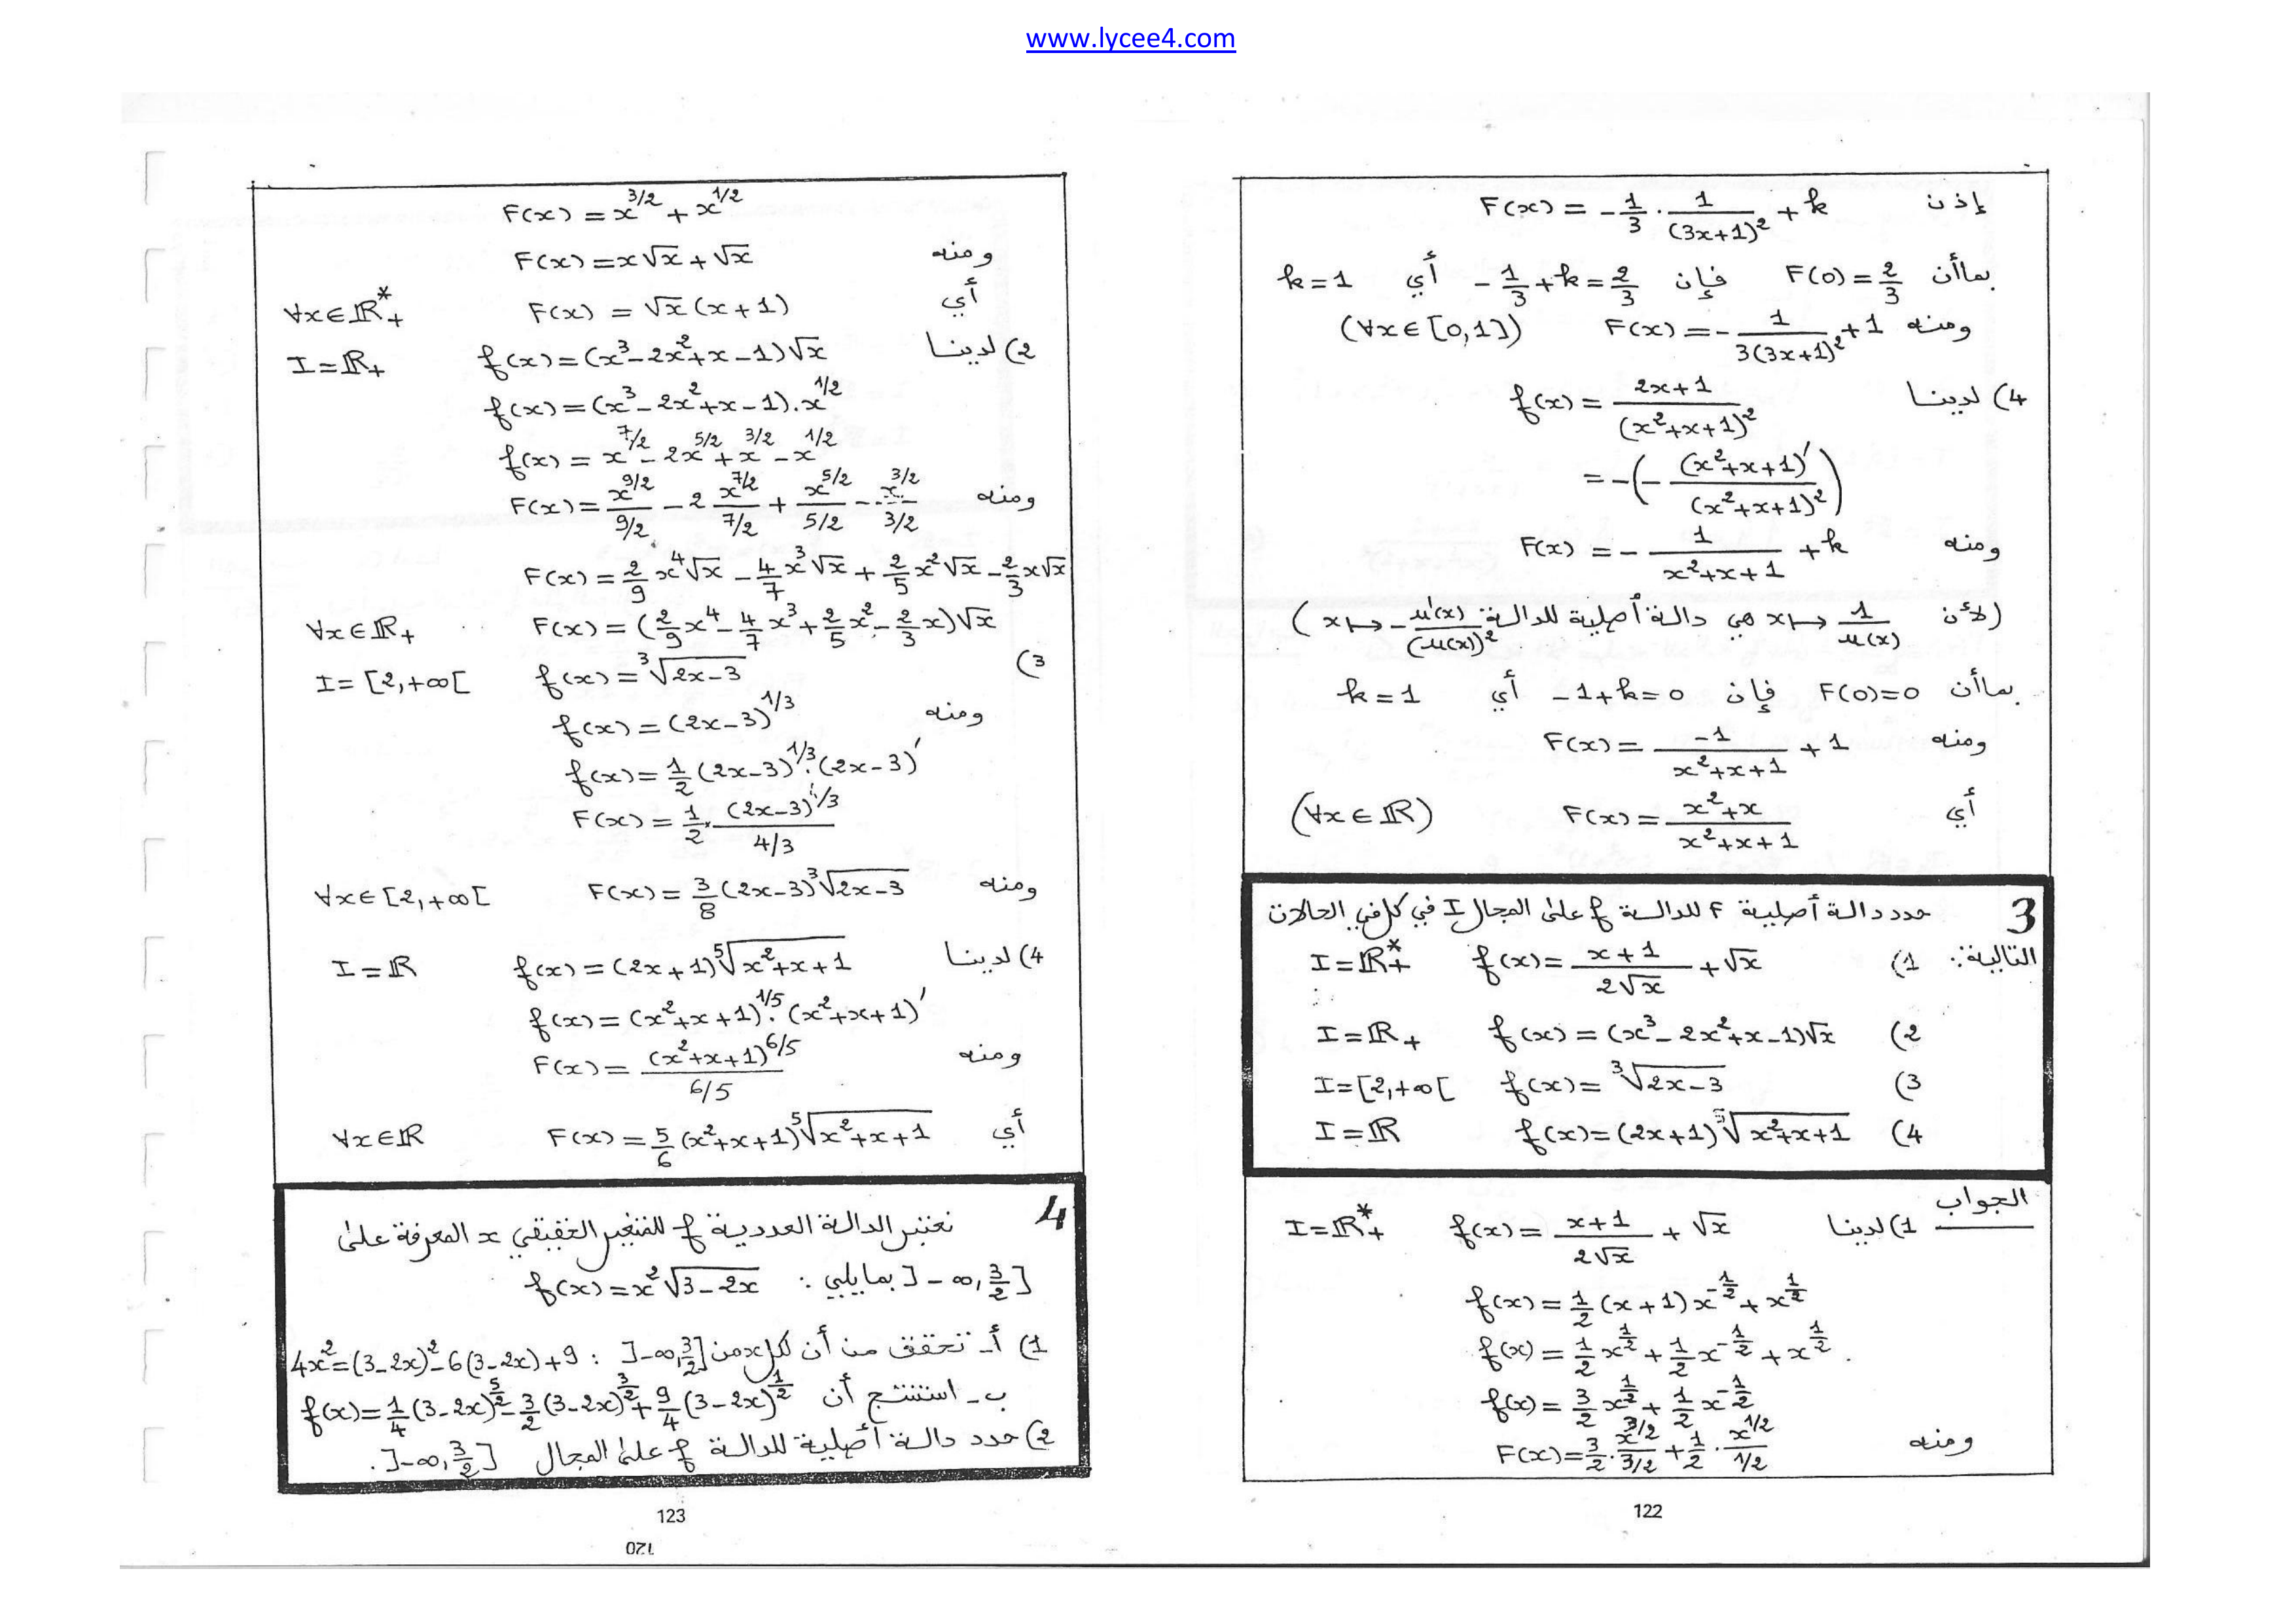 www.lycee4.com
إذن F(x) = -1/3 · 1/(3x+1)² + k
بما أن F(0) = 2/3 فإن -1/3 + k = 2/3 أي k = 1
ومنه F(x) = - 1/(3(3x+1)²) + 1 (∀x∈[0,1])
4) لدينا f(x) = (2x+1)/(x²+x+1)²
= -(- (x²+x+1)'/(x²+x+1)²)
ومنه F(x) = - 1/(x²+x+1) + k
(لأن x↦ 1/u(x) هي دالة أصلية للدالة x↦ - u'(x)/(u(x))²)
بما أن F(0)=0 فإن -1+k=0 أي k=1
ومنه F(x) = -1/(x²+x+1) + 1
أي F(x) = (x²+x)/(x²+x+1) (∀x∈ℝ)
3 حدد دالة أصلية F للدالة f على المجال I في كل في الحالات
التالية: 1) f(x) = (x+1)/(2√x) + √x I=ℝ*₊
2) f(x) = (x³-2x²+x-1)√x I=ℝ₊
3) f(x) = ³√(2x-3) I=[2,+∞[
4) f(x) = (2x+1)⁵√(x²+x+1) I=ℝ
الجواب
1) لدينا f(x) = (x+1)/(2√x) + √x I=ℝ*₊
f(x) = 1/2 (x+1) x^(-1/2) + x^(1/2)
f(x) = 1/2 x^(1/2) + 1/2 x^(-1/2) + x^(1/2).
f(x) = 3/2 x^(1/2) + 1/2 x^(-1/2)
ومنه F(x) = 3/2 · x^(3/2)/(3/2) + 1/2 · x^(1/2)/(1/2)
122
F(x) = x^(3/2) + x^(1/2)
ومنه F(x) = x√x + √x
أي F(x) = √x (x+1) ∀x∈ℝ*₊
2) لدينا f(x) = (x³-2x²+x-1)√x I=ℝ₊
f(x) = (x³-2x²+x-1).x^(1/2)
f(x) = x^(7/2) - 2x^(5/2) + x^(3/2) - x^(1/2)
ومنه F(x) = x^(9/2)/(9/2) - 2 x^(7/2)/(7/2) + x^(5/2)/(5/2) - x^(3/2)/(3/2)
F(x) = 2/9 x⁴√x - 4/7 x³√x + 2/5 x²√x - 2/3 x√x
F(x) = (2/9 x⁴ - 4/7 x³ + 2/5 x² - 2/3 x)√x ∀x∈ℝ₊
3) f(x) = ³√(2x-3) I=[2,+∞[
ومنه f(x) = (2x-3)^(1/3)
f(x) = 1/2 (2x-3)^(1/3).(2x-3)'
F(x) = 1/2 × (2x-3)^(4/3)/(4/3)
ومنه F(x) = 3/8 (2x-3)³√(2x-3) ∀x∈[2,+∞[
4) لدينا f(x) = (2x+1)⁵√(x²+x+1) I=ℝ
f(x) = (x²+x+1)^(1/5).(x²+x+1)'
ومنه F(x) = (x²+x+1)^(6/5)/(6/5)
أي F(x) = 5/6 (x²+x+1)⁵√(x²+x+1) ∀x∈ℝ
4 نعتبر الدالة العددية f للمتغير الحقيقي x المعرفة على
]-∞,3/2] بمايلي : f(x) = x²√(3-2x)
1) أ- تحقق من أن لكل x من ]-∞,3/2] : 4x² = (3-2x)² - 6(3-2x) + 9
ب- استنتج أن f(x) = 1/4 (3-2x)^(5/2) - 3/2 (3-2x)^(3/2) + 9/4 (3-2x)^(1/2)
2) حدد دالة أصلية للدالة f على المجال ]-∞,3/2].
123
120